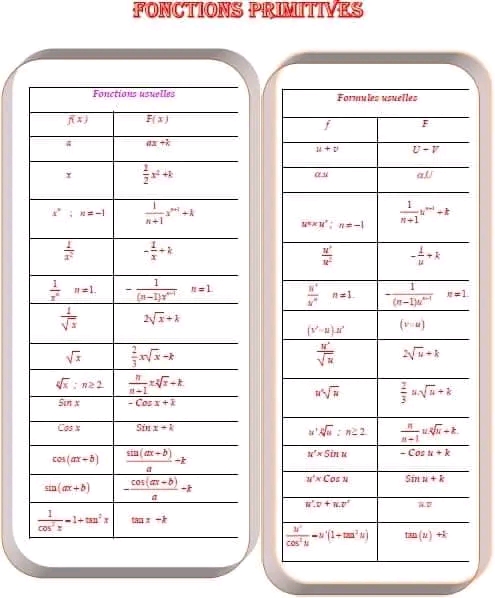 FONCTIONS PRIMITIVES
Fonctions usuelles
f(x) F(x)
a ax+k
x 1/2 x² +k
xⁿ ; n≠-1 1/(n+1) xⁿ⁺¹ + k
1/x² -1/x + k
1/xⁿ n≠1. - 1/((n-1)xⁿ⁻¹) n≠1.
1/√x 2√x + k
√x 2/3 x√x +k
ⁿ√x ; n≥2. n/(n+1) x ⁿ√x + k.
Sin x - Cos x + k
Cos x Sin x + k
cos(ax+b) sin(ax+b)/a +k
sin(ax+b) - cos(ax+b)/a +k
1/cos² x = 1+tan² x tan x +k
Formules usuelles
f F
u + v U + V
αu αU
uⁿ×u' ; n≠-1 1/(n+1) uⁿ⁺¹ + k
u'/u² -1/u + k
u'/uⁿ n≠1. - 1/((n-1)uⁿ⁻¹) n≠1.
(v'∘u).u' (v∘u)
u'/√u 2√u + k
u'√u 2/3 u.√u + k
u' ⁿ√u ; n≥2. n/(n+1) u.ⁿ√u + k.
u'× Sin u - Cos u + k
u'× Cos u Sin u + k
u'.v + u.v' u.v
u'/cos² u = u'(1+tan² u) tan(u) +k